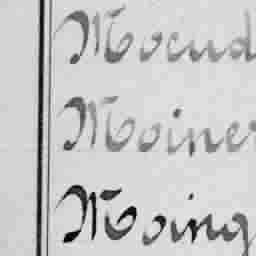 Moeud
Moiner
Moing